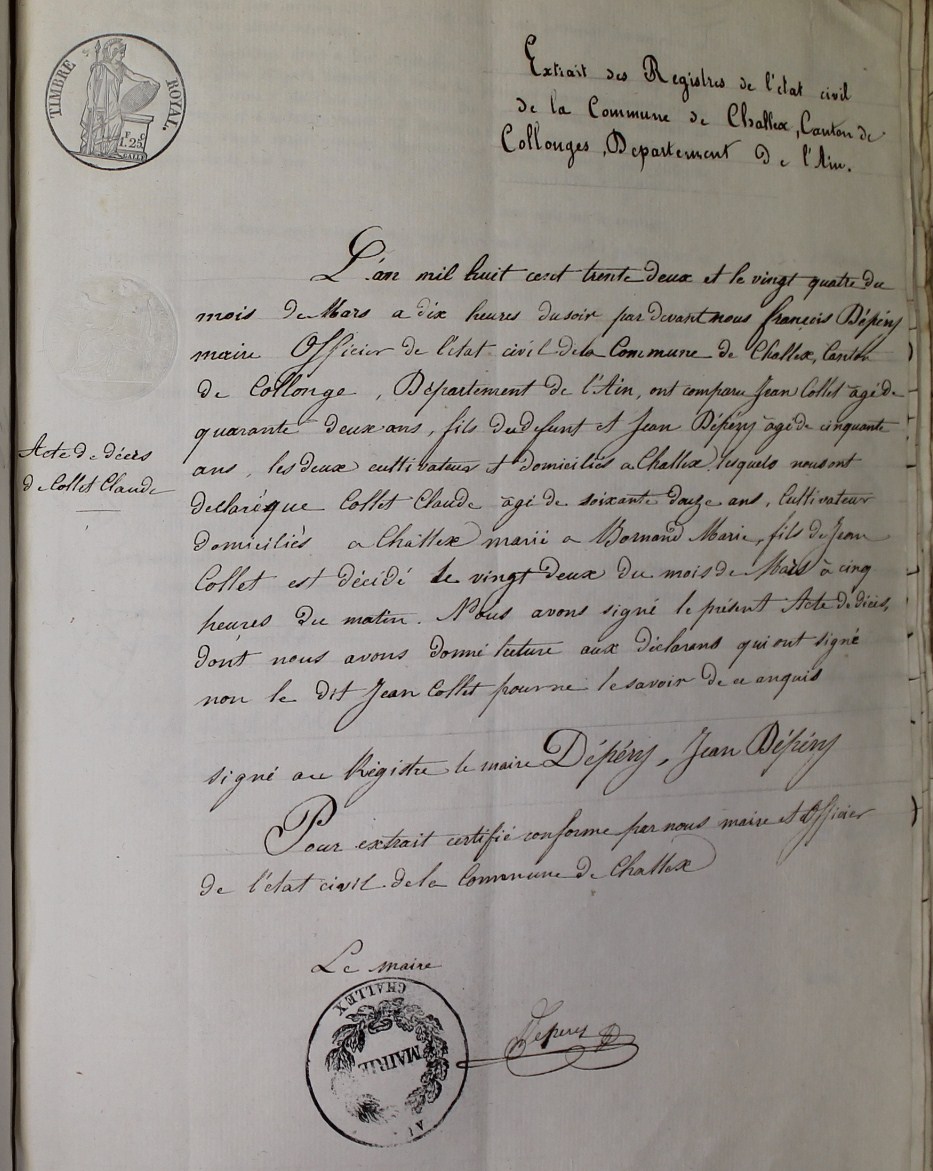 TIMBRE ROYAL.
F. C.
1. 25
Extrait des Registres de l'état civil
de la Commune de Challex, Canton de
Collonges, Departement De l'Ain.
L'an mil huit cent trente deux et le vingt quatre du
mois de Mars a dix heures du soir par devant nous françois Dépéry
maire Officier de l'état civil de la Commune de Challex, Canton
de Collonge, Département de l'Ain, ont comparu Jean Collet âgé de
quarante deux ans, fils du defunt et Jean Dépéry âgé de cinquante
ans, les deux cultivateur et domiciliés a Challex, lesquels nous ont
declaré que Collet Claude âgé de soixante douze ans, Cultivateur
domiciliés a Challex marié a Bornand Marie, fils de Jean
Collet est décidé le vingt deux du mois de Mars à cinq
heures du matin. Nous avons signé le présent Acte de décès,
dont nous avons donné lecture aux déclarans qui ont signé
non le dit Jean Collet pour ne le savoir de ce anquis
signé au Régistre le maire Dépéry, Jean Dépéry
Pour extrait certifié conforme par nous maire et Officier
de l'état civil de la Commune de Challex
Acte de décès
de Collet Claude
Le maire
CHALLEX
MAIRIE
Depery